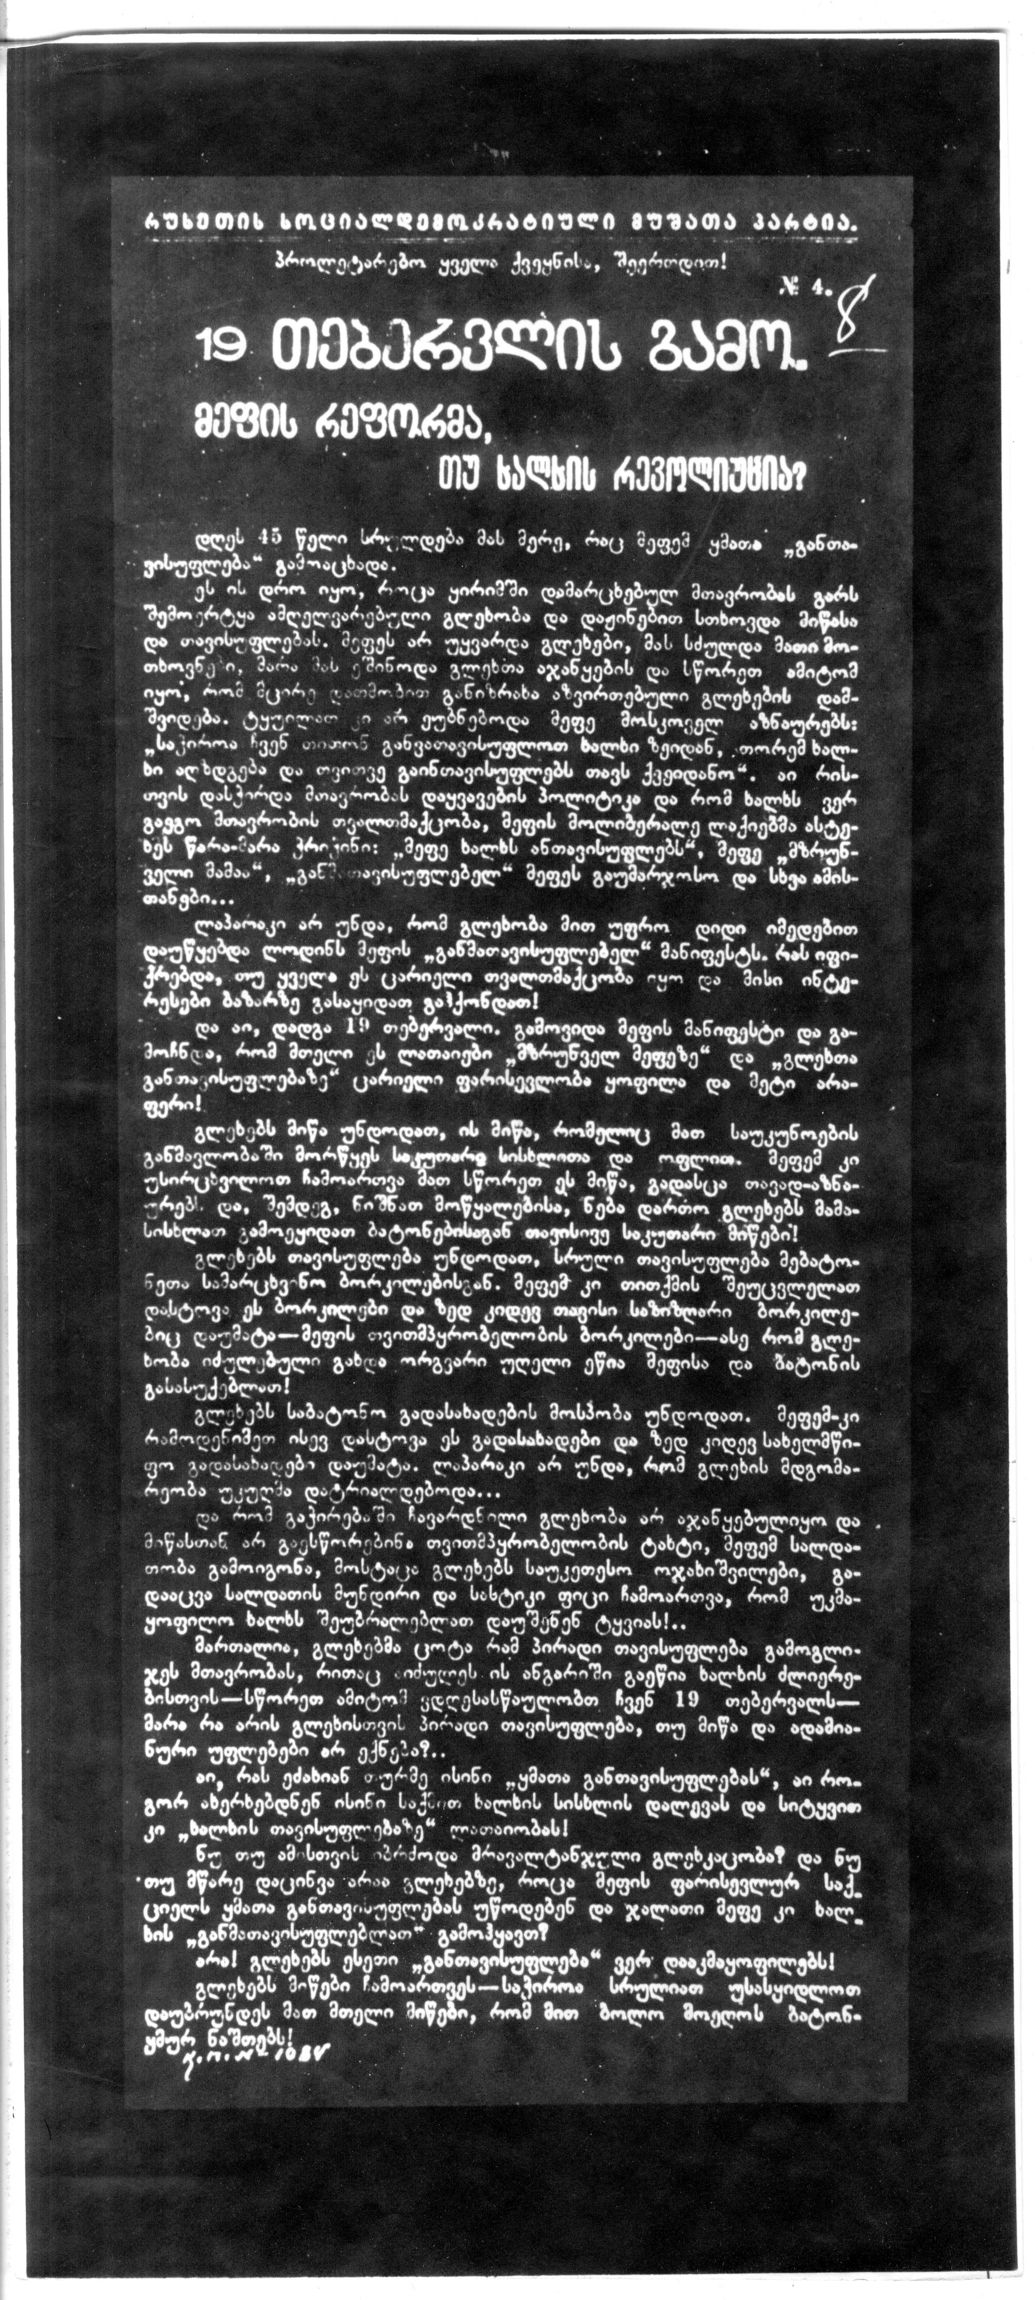 რუსეთის სოციალდემოკრატიული მუშათა პარტია.
პროლეტარებო ყველა ქვეყნისა, შეერთდით!
№ 4.
8
19 თებერვლის გამო.
მეფის რეფორმა,
თუ ხალხის რევოლიუცია?
დღეს 45 წელი სრულდება მას მერე, რაც მეფემ ყმათა „განთა-
ვისუფლება“ გამოაცხადა.
ეს ის დრო იყო, როცა ყირიმში დამარცხებულ მთავრობას გარს
შემოერტყა ამღელვარებული გლეხობა და დაჟინებით სთხოვდა მიწასა
და თავისუფლებას. მეფეს არ უყვარდა გლეხები, მას სძულდა მათი მო-
თხოვნები, მარა მას ეშინოდა გლეხთა აჯანყების და სწორეთ ამიტომ
იყო, რომ მცირე დათმობით განიზრახა აზვირთებული გლეხების დამ-
შვიდება. ტყუილათ კი არ ეუბნებოდა მეფე მოსკოველ აზნაურებს:
„საჭიროა ჩვენ თითონ განვათავისუფლოთ ხალხი ზეიდან, თორემ ხალ-
ხი აღზდგება და თვითვე გაინთავისუფლებს თავს ქვეიდანო“. აი რის-
თვის დასჭირდა მთავრობას დაყვავების პოლიტიკა და რომ ხალხს ვერ
გაეგო მთავრობის თვალთმაქცობა, მეფის მოლიბერალე ლაქიებმა ასტე-
ხეს წარა-მარა კრიჭინი: „მეფე ხალხს ანთავისუფლებს“, მეფე „მზრუნ-
ველი მამაა“, „განმათავისუფლებელ“ მეფეს გაუმარჯოსო და სხვა ამის-
თანები...
ლაპარაკი არ უნდა, რომ გლეხობა მით უფრო დიდი იმედებით
დაუწყებდა ლოდინს მეფის „განმათავისუფლებელ“ მანიფესტს. რას იფი-
ქრებდა, თუ ყველა ეს ცარიელი თვალთმაქცობა იყო და მისი ინტე-
რესები ბაზარზე გასაყიდათ გაჰქონდათ!
და აი, დადგა 19 თებერვალი. გამოვიდა მეფის მანიფესტი და გა-
მოჩნდა, რომ მთელი ეს ლათაიები „მზრუნველ მეფეზე“ და „გლეხთა
განთავისუფლებაზე“ ცარიელი ფარისევლობა ყოფილა და მეტი არა-
ფერი!
გლეხებს მიწა უნდოდათ, ის მიწა, რომელიც მათ საუკუნოების
განმავლობაში მორწყეს საკუთარი სისხლითა და ოფლით. მეფემ კი
უსირცხვილოთ ჩამოართვა მათ სწორეთ ეს მიწა, გადასცა თავად-აზნა-
ურებს და, შემდეგ, ნიშნათ მოწყალებისა, ნება დართო გლეხებს მამა-
სისხლათ გამოეყიდათ ბატონებისაგან თავისივე საკუთარი მიწები!
გლეხებს თავისუფლება უნდოდათ, სრული თავისუფლება მებატო-
ნეთა სამარცხვინო ბორკილებისგან. მეფემ კი თითქმის შეუცვლელათ
დასტოვა ეს ბორკილები და ზედ კიდევ თავისი საზიზღარი ბორკილე-
ბიც დაუმატა—მეფის თვითმპყრობელობის ბორკილები—ასე რომ გლე-
ხობა იძულებული გახდა ორგვარი უღელი ეწია მეფისა და ბატონის
გასასუქებლათ!
გლეხებს საბატონო გადასახადების მოსპობა უნდოდათ. მეფემ-კი
რამოდენიმეთ ისევ დასტოვა ეს გადასახადები და ზედ კიდევ სახელმწი-
ფო გადასახადები დაუმატა. ლაპარაკი არ უნდა, რომ გლეხის მდგომა-
რეობა უკუღმა დატრიალდებოდა...
და რომ გაჭირებაში ჩავარდნილი გლეხობა არ აჯანყებულიყო და
მიწასთან არ გაესწორებინა თვითმპყრობელობის ტახტი, მეფემ სალდა-
თობა გამოიგონა, მოსტაცა გლეხებს საუკეთესო ოჯახიშვილები, გა-
დააცვა სალდათის მუნდირი და სასტიკი ფიცი ჩამოართვა, რომ უკმა-
ყოფილო ხალხს შეუბრალებლათ დაუშენენ ტყვიას!..
მართალია, გლეხებმა ცოტა რამ პირადი თავისუფლება გამოგლი-
ჯეს მთავრობას, რითაც აიძულეს ის ანგარიში გაეწია ხალხის ძლიერე-
ბისთვის—სწორეთ ამიტომ ვდღესასწაულობთ ჩვენ 19 თებერვალს—
მარა რა არის გლეხისთვის პირადი თავისუფლება, თუ მიწა და ადამია-
ნური უფლებები არ ექნება?..
აი, რას ეძახიან თურმე ისინი „ყმათა განთავისუფლებას“, აი რო-
გორ ახერხებდნენ ისინი საქმით ხალხის სისხლის დალევას და სიტყვით
კი „ხალხის თავისუფლებაზე“ ლათაიობას!
ნუ თუ ამისთვის იბრძოდა მრავალტანჯული გლეხკაცობა? და ნუ
თუ მწარე დაცინვა არაა გლეხებზე, როცა მეფის ფარისევლურ საქ-
ციელს ყმათა განთავისუფლებას უწოდებენ და ჯალათი მეფე კი ხალ-
ხის „განმათავისუფლებლათ“ გამოჰყავთ?
არა! გლეხებს ესეთი „განთავისუფლება“ ვერ დააკმაყოფილებს!
გლეხებს მიწები ჩამოართვეს—საჭიროა სრულიათ უსასყიდლოთ
დაუბრუნდეს მათ მთელი მიწები, რომ მით ბოლო მოეღოს ბატონ-
ყმურ ნაშთებს!